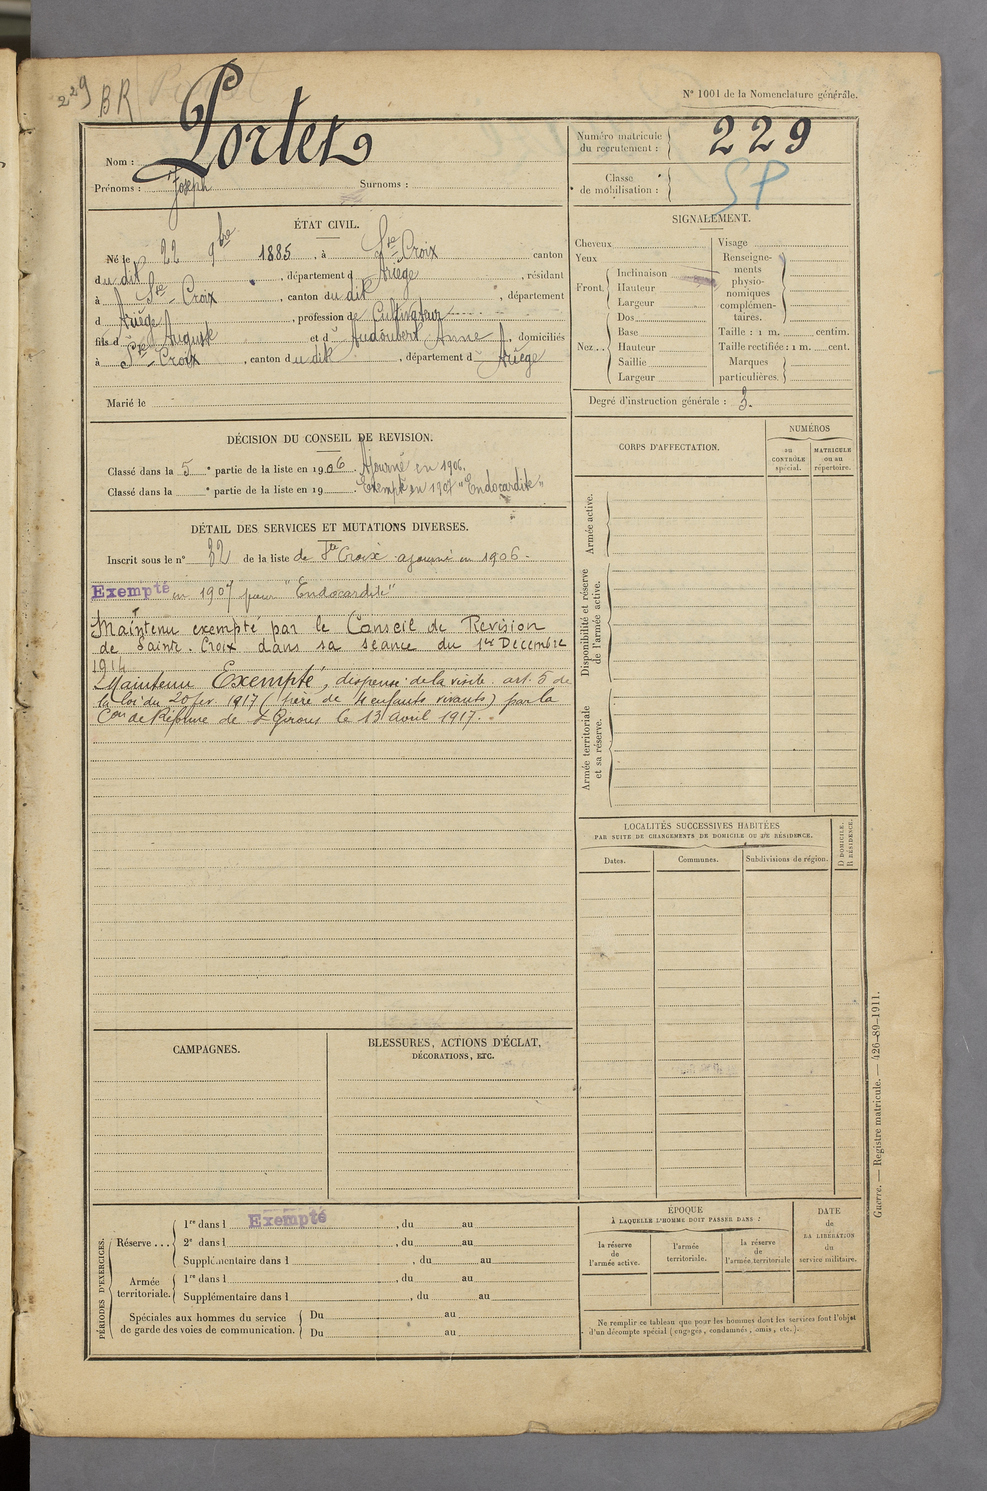 229
BR
N° 1001 de la Nomenclature générale.
Nom : Portet
Prénoms : Joseph Surnoms :
Numéro matricule du recrutement : 229
Classe de mobilisation : SP
ÉTAT CIVIL.
Né le 22 9bre 1885, à Ste-Croix canton
du dit, département d Ariège, résidant
à Ste-Croix, canton du dit, département
d Ariège, profession de Cultivateur
fils d Auguste et d Audoubert Anne, domiciliés
à Ste-Croix, canton du dit, département d Ariège
Marié le
SIGNALEMENT.
Cheveux
Yeux
Front. Inclinaison
Hauteur
Largeur
Nez... Dos
Base
Hauteur
Saillie
Largeur
Visage
Renseignements physionomiques complémentaires.
Taille : 1 m. centim.
Taille rectifiée : 1 m. cent.
Marques particulières.
Degré d'instruction générale : 3.
DÉCISION DU CONSEIL DE REVISION.
Classé dans la 5e partie de la liste en 1906. Ajourné en 1906.
Classé dans la e partie de la liste en 19 . Exempté en 1907 "Endocardite"
DÉTAIL DES SERVICES ET MUTATIONS DIVERSES.
Inscrit sous le n° 32 de la liste de Ste Croix ajourné en 1906.
Exempté en 1907 pour "Endocardite"
Maintenu exempté par le Conseil de Revision
de Sainte-Croix dans sa séance du 1er Décembre
1914
Maintenu Exempté, dispensé de la visite. art. 5 de
la loi du 20 fév 1917 (père de 4 enfants vivants) par la
Con de Réforme de St Girons le 13 avril 1917.
CORPS D'AFFECTATION.
NUMÉROS
au CONTRÔLE spécial.
MATRICULE ou au répertoire.
Armée active.
Disponibilité et réserve de l'armée active.
Armée territoriale et sa réserve.
LOCALITÉS SUCCESSIVES HABITÉES
PAR SUITE DE CHANGEMENTS DE DOMICILE OU DE RÉSIDENCE.
Dates.
Communes.
Subdivisions de région.
D DOMICILE.
R RÉSIDENCE.
CAMPAGNES.
BLESSURES, ACTIONS D'ÉCLAT,
DÉCORATIONS, ETC.
PÉRIODES D'EXERCICES.
Réserve ... 1re dans l Exempté, du au
2e dans l , du au
Supplémentaire dans l , du au
Armée territoriale. 1re dans l , du au
Supplémentaire dans l , du au
Spéciales aux hommes du service de garde des voies de communication. Du au
Du au
ÉPOQUE
À LAQUELLE L'HOMME DOIT PASSER DANS :
la réserve de l'armée active.
l'armée territoriale.
la réserve de l'armée territoriale
DATE
de
LA LIBÉRATION
du
service militaire.
Ne remplir ce tableau que pour les hommes dont les services font l'objet
d'un décompte spécial (engagés, condamnés, omis, etc.).
Guerre. — Registre matricule. — 426-89-1911.